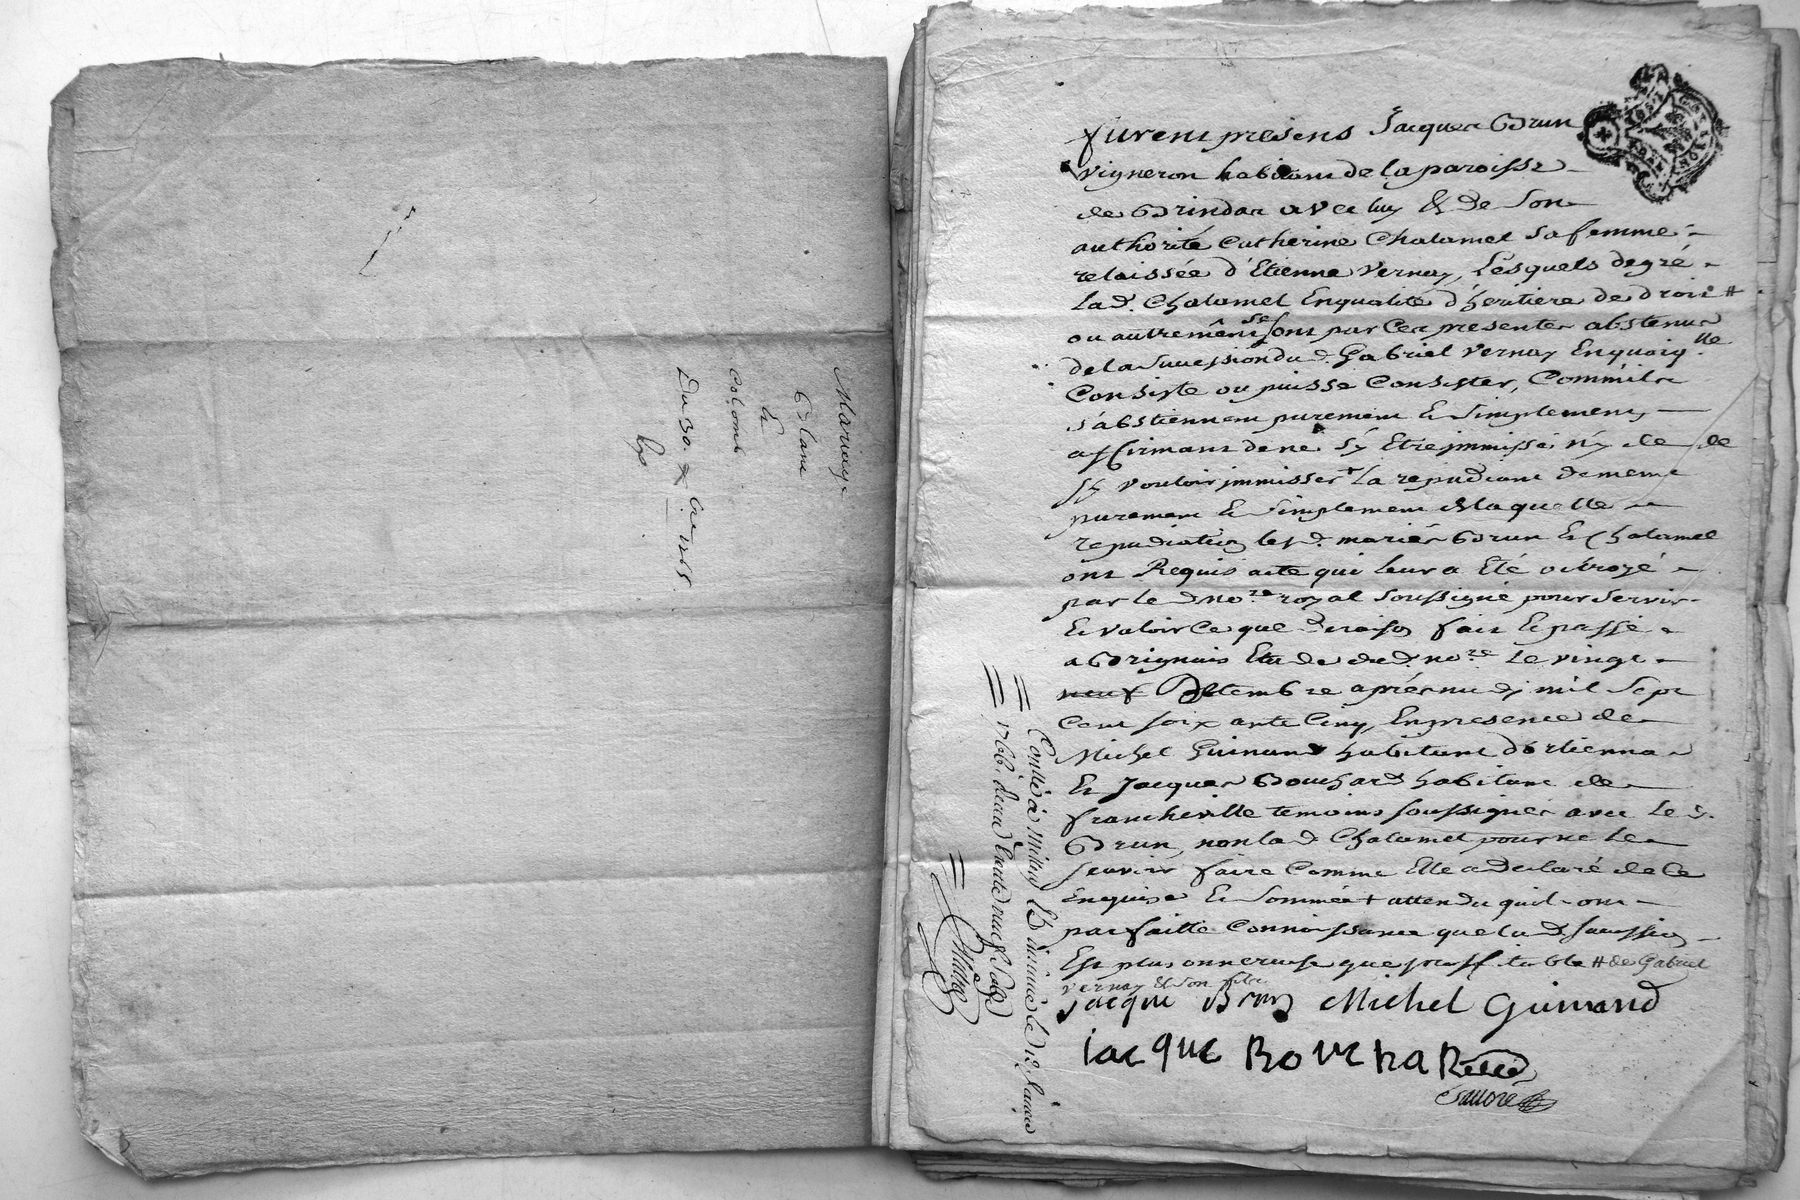 Mariage
Blanc
&
Colomb
Du 30. xbre 1765.
furent presens Jacques Brun
vigneron habitant de la paroisse
de Brindas avec luy & de son
authorité Catherine Chalamel sa femme
relaissée d'Etienne Vernay, lesquels de gré
la d. Chalamel En qualité d'heritiere de droit #
ou autrement se sont par Ces presentes abstenus
de la succession du d. Gabriel Vernay En quoiq.lle
Consiste ou puisse Consister, Comm'ils
s'abstiennent purement & simplement
affirmant de ne s'y Etre immissé n'y de
s'y vouloir immisser la repudiant de meme
purement & simplement de laquelle
repudiation les d. mariés Brun & Chalamel
ont Requis acte qui leur a Eté octroyé
par le d. no.re royal soussigné pour servir
& valoir Ce que de raison fait & passé
a Brignais Etude du d. no.re le vingt
neuf Decembre après midy mil sept
Cent soixante Cinq, En presence de
Michel Guinand habitant d'orlienna
& Jacques Bouchard habitant de
francheville temoins soussignés avec le d.
Brun, non la d. Chalamel pour ne le
sçavoir faire Comme Elle a declaré de ce
Enquise & sommée + attendu quil ont
parfaitte Connoissance que la d. succession
Est plus onnereuse que profitable # de Gabriel
Vernay & son fils
jacque Brun Michel Guinand
iacque Bouchard
Contlé à
1766.